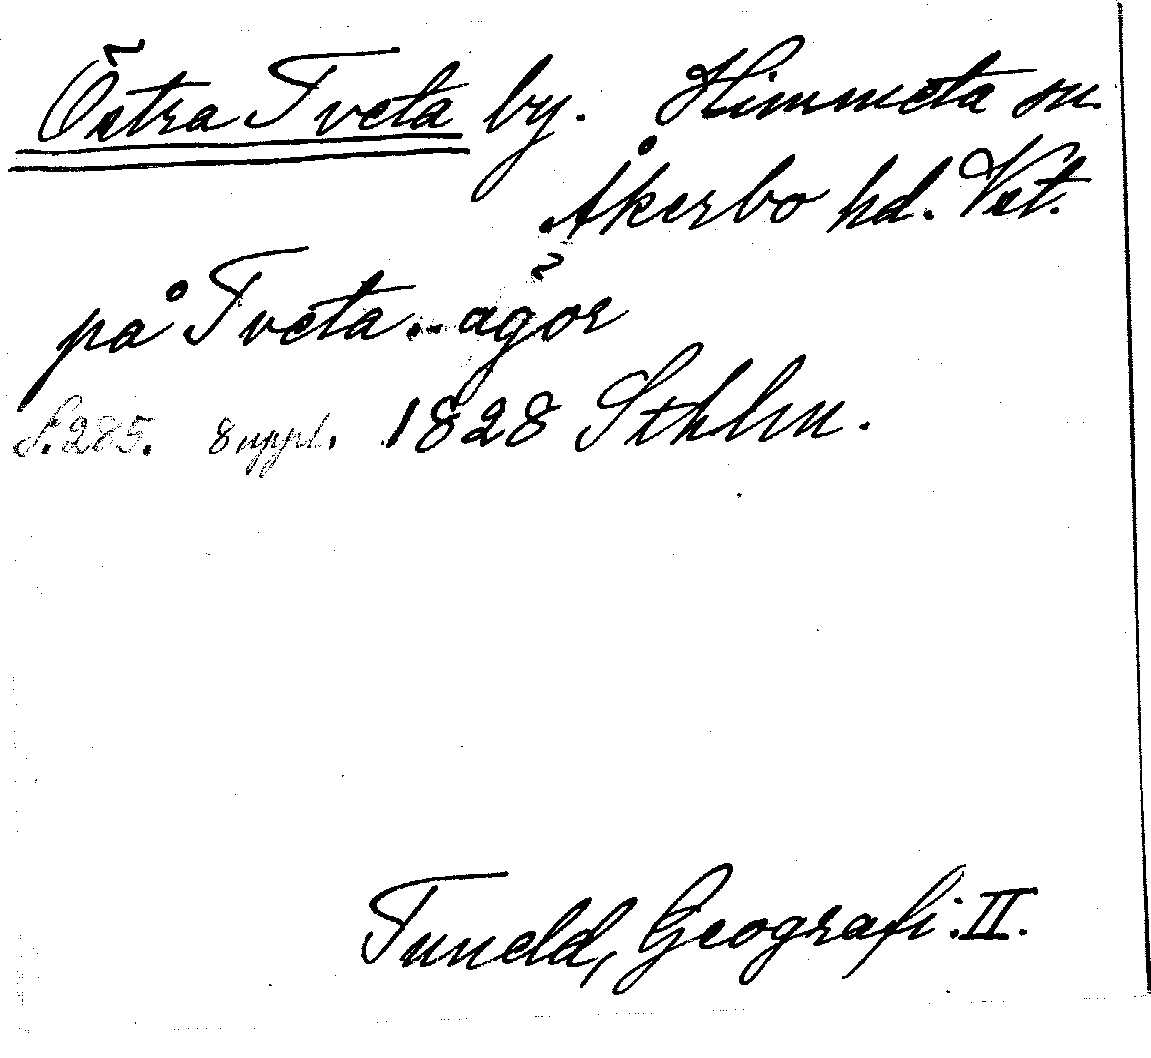 Östra Tveta by. Himmeta sn.
Åkerbo hd. Vst.
på Tveta ägor
S. 285. 8 uppl. 1828 Sthlm.
Tuneld, Geografi. II.